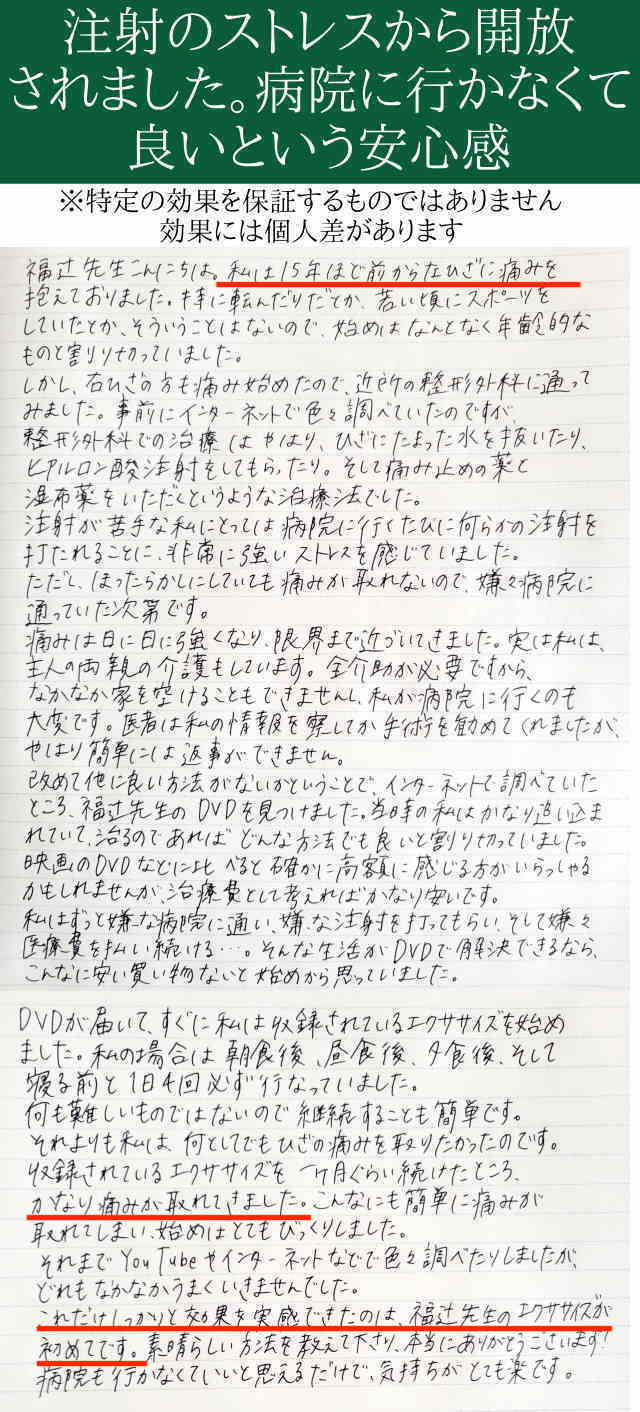 注射のストレスから開放
されました。病院に行かなくて
良いという安心感
※特定の効果を保証するものではありません
効果には個人差があります
福辻先生こんにちは。私は15年ほど前から左ひざに痛みを
抱えておりました。特に転んだりだとか、若い頃にスポーツを
していたとか、そういうことはないので、始めはなんとなく年齢的な
ものと割り切っていました。
しかし、右ひざの方も痛み始めたので、近所の整形外科に通って
みました。事前にインターネットで色々調べていたのですが、
整形外科での治療はやはり、ひざにたまった水を抜いたり、
ヒアルロン酸注射をしてもらったり。そして痛み止めの薬と
湿布薬をいただくというような治療法でした。
注射が苦手な私にとっては病院に行くたびに何らかの注射を
打たれることに、非常に強いストレスを感じていました。
ただし、ほったらかしにしていても痛みが取れないので、嫌々病院に
通っていた次第です。
痛みは日に日に強くなり、限界まで近づいてきました。実は私は、
主人の両親の介護もしています。全介助が必要ですから、
なかなか家を空けることもできませんし、私が病院に行くのも
大変です。医者は私の情報を察してか手術を勧めてくれましたが、
やはり簡単には返事ができません。
改めて他に良い方法がないかということで、インターネットで調べていた
ところ、福辻先生のDVDを見つけました。当時の私はかなり追い込ま
れていて、治るのであればどんな方法でも良いと割り切っていました。
映画のDVDなどに比べると確かに高額に感じる方がいらっしゃる
かもしれませんが、治療費として考えればかなり安いです。
私はずっと嫌な病院に通い、嫌な注射を打ってもらい、そして嫌々
医療費を払い続ける…。そんな生活がDVDで解決できるなら、
こんなに安い買い物ないと始めから思っていました。
DVDが届いて、すぐに私は収録されているエクササイズを始め
ました。私の場合は朝食後、昼食後、夕食後、そして
寝る前と1日4回必ず行なっていました。
何も難しいものではないので継続することも簡単です。
それよりも私は、何としてでもひざの痛みを取りたかったのです。
収録されているエクササイズを一ヶ月ぐらい続けたところ、
かなり痛みが取れてきました。こんなにも簡単に痛みが
取れてしまい、始めはとてもびっくりしました。
それまでYouTubeやインターネットなどで色々調べたりしましたが、
どれもなかなかうまくいきませんでした。
これだけしっかりと効果を実感できたのは、福辻先生のエクササイズが
初めてです。素晴らしい方法を教えて下さり、本当にありがとうございます!
病院も行かなくていいと思えるだけで、気持ちがとても楽です。